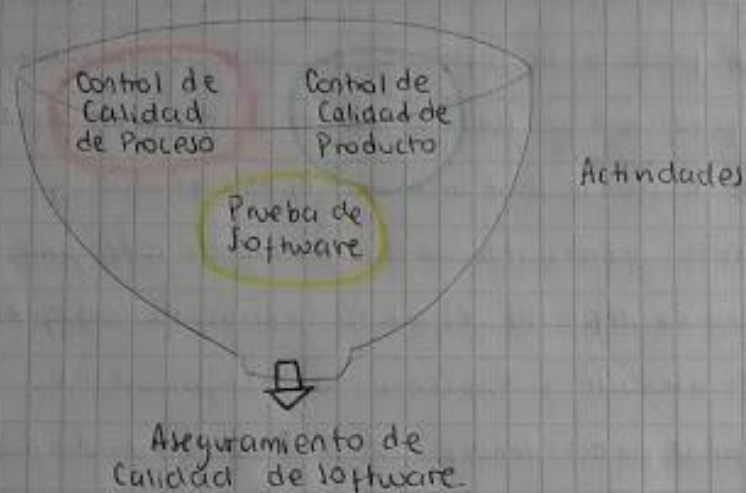 Control de
Calidad
de Proceso
Control de
Calidad de
Producto
Prueba de
Software
Actividades
Aseguramiento de
Calidad de software